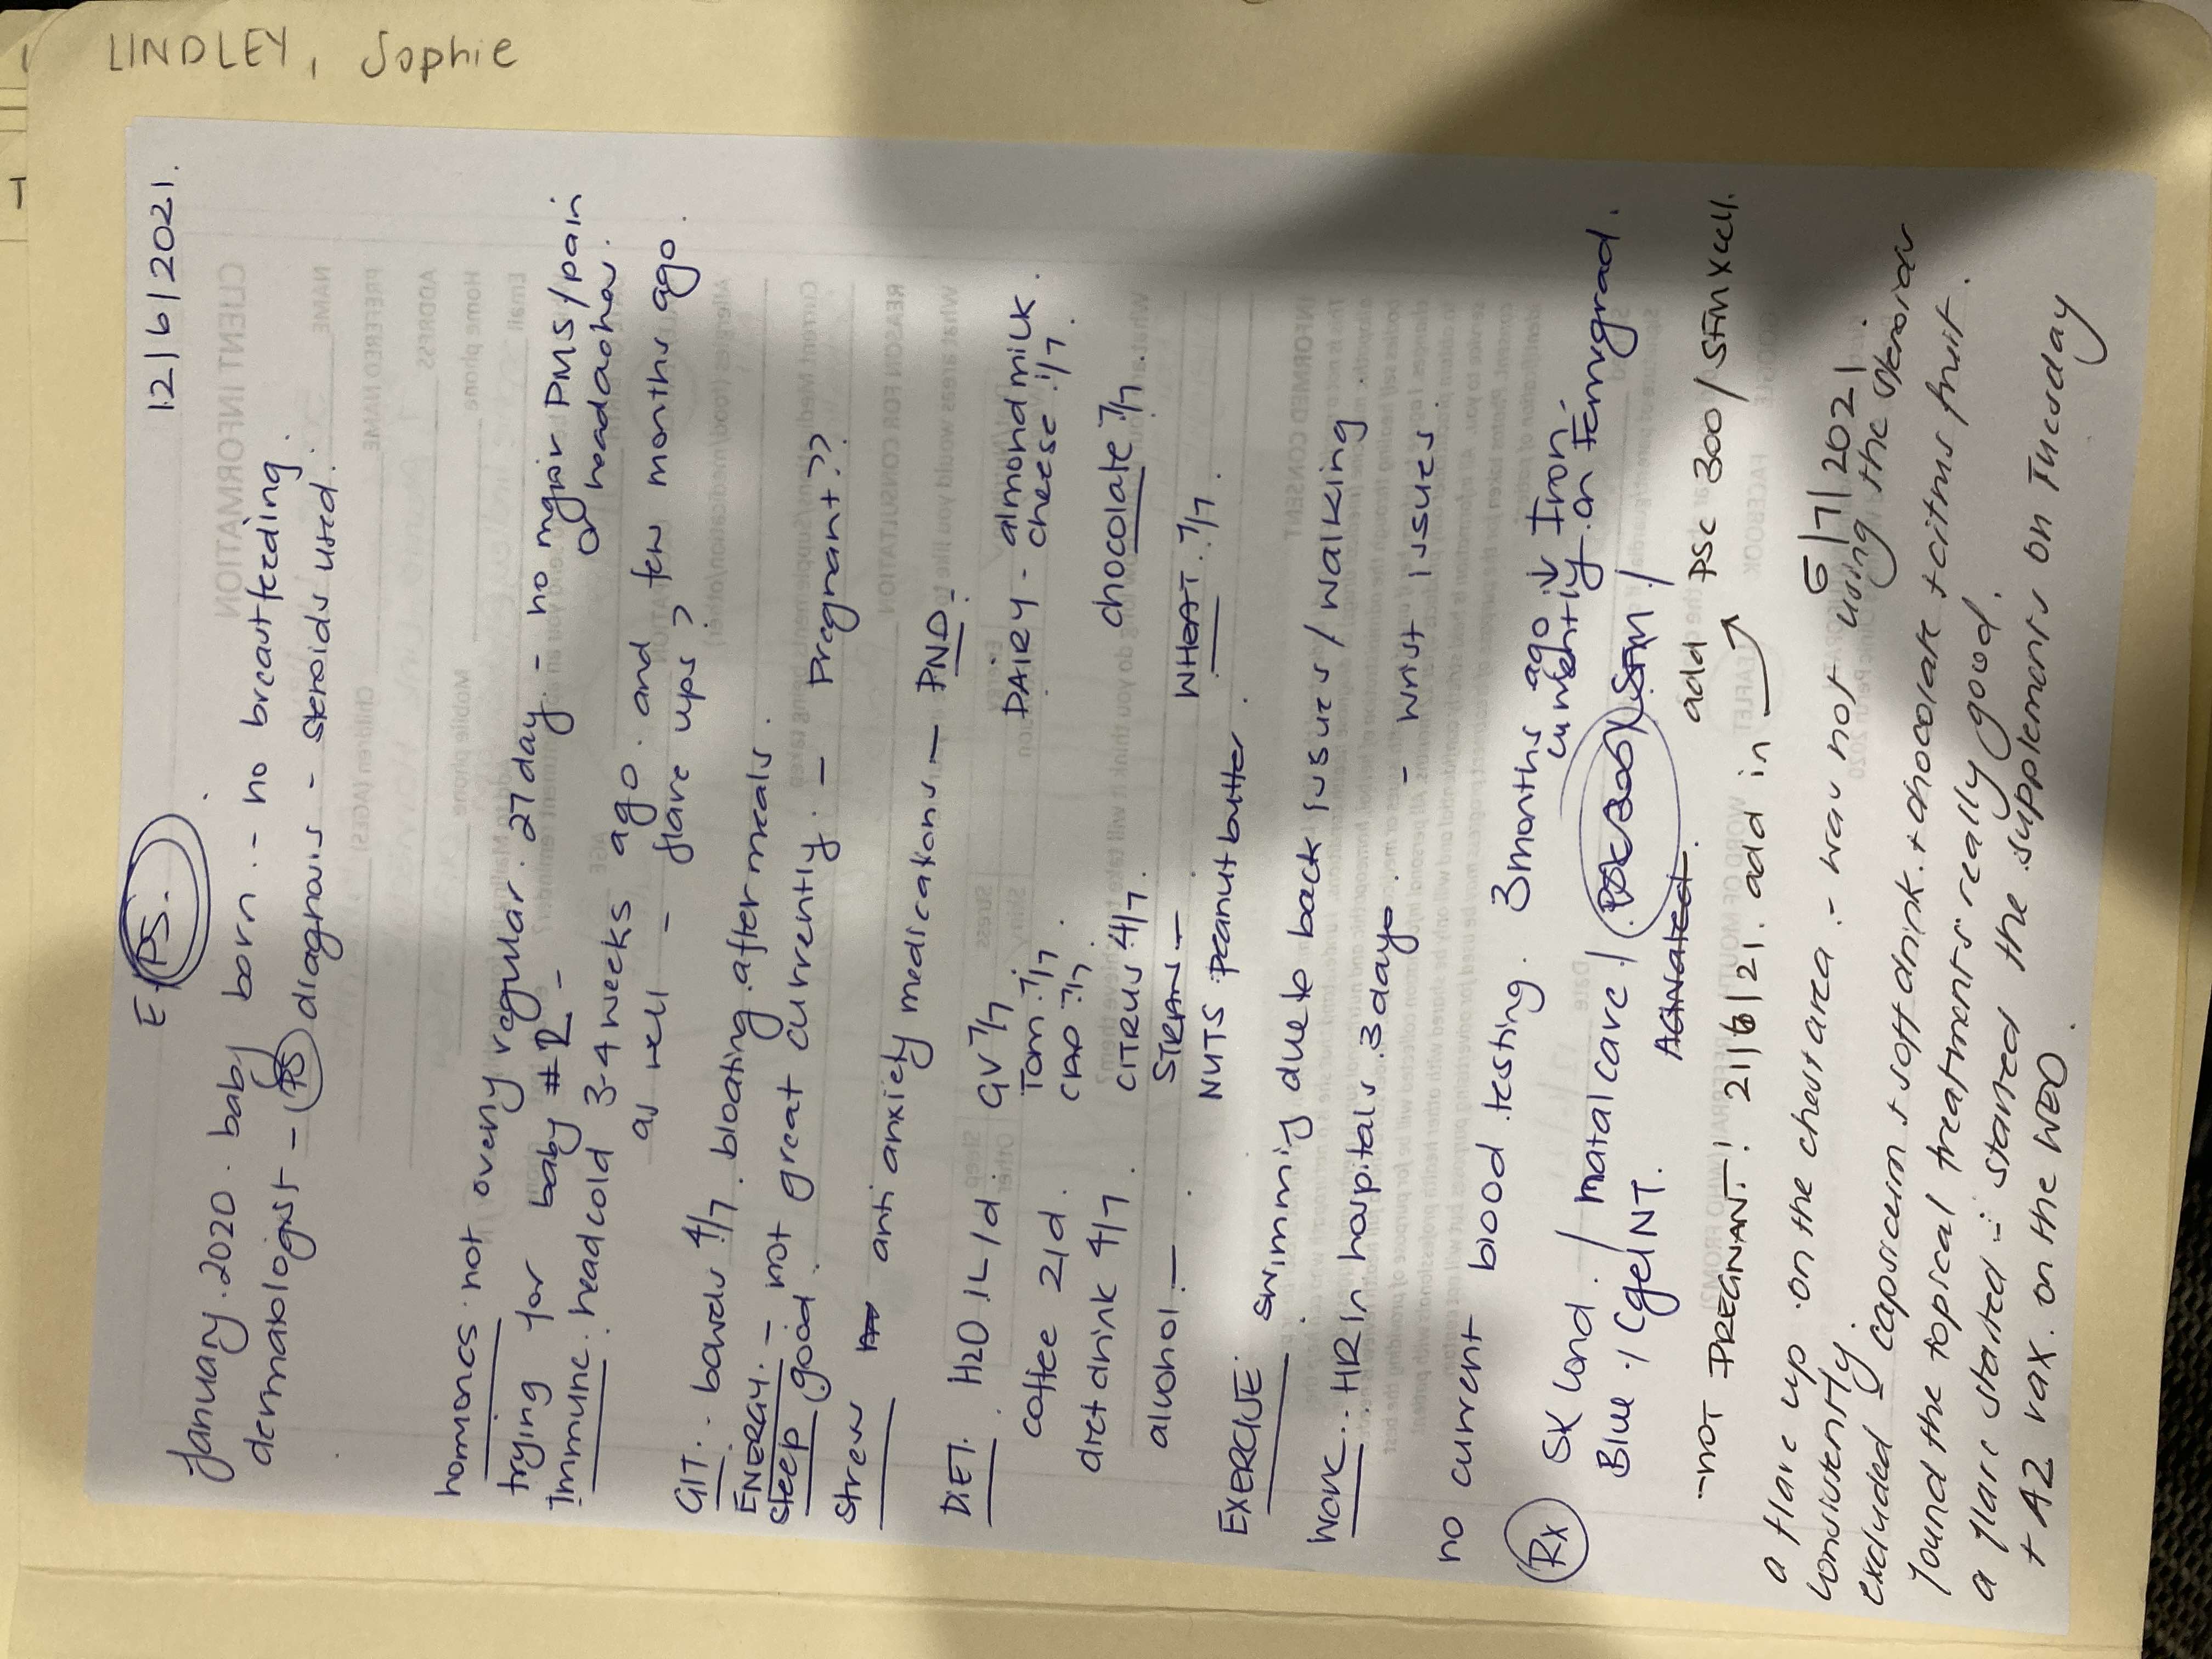 LINDLEY, Sophie
12/6/2021.
E/PS.
January. 2020. baby born. - no breastfeeding.
dermatologist - PS diagnosis - steroids used.
hormones. not overly regular. 27 day. - no major PMS/pain
or headaches.
trying for baby #2 -
immune. headcold 3-4 weeks ago. and few months ago.
as well - flare ups?
GIT. - bowels 4/7. bloating. after meals.
ENERGY. - not great currently. - Pregnant??
sleep good.
stress anti anxiety medications - PND.
DIET. H2O. 1L/d. GV 7/7 DAIRY - almond milk.
coffee 2/d. Tom. 7/7. cheese. 1/7.
CAP 7/7.
diet drink 4/7. CITRUS 4/7. chocolate 7/7.
alcohol. - STRAW -
NUTS peanut butter. WHEAT. 7/7.
EXERCISE. swimming due to back issues / walking
Work. HR in hospitals. 3 days. - wrist issues.
no current blood testing. 3 months ago ↓ Iron.
currently on Ferrograd.
Rx SK Cond. / matal care / PSC 300 / SFM /
Blue / Cgel NT. Activated.
- NOT PREGNANT! 21/6/21. add in → add PSC 300/SFM xcell.
6/7/2021.
a flare up on the chest area. - was not using the steroids
consistently.
excluded capsicum + soft drink. + chocolate + citrus fruit.
found the topical treatments really good.
a flare started - started the supplements on Tuesday
+ AZ vax. on the WED.